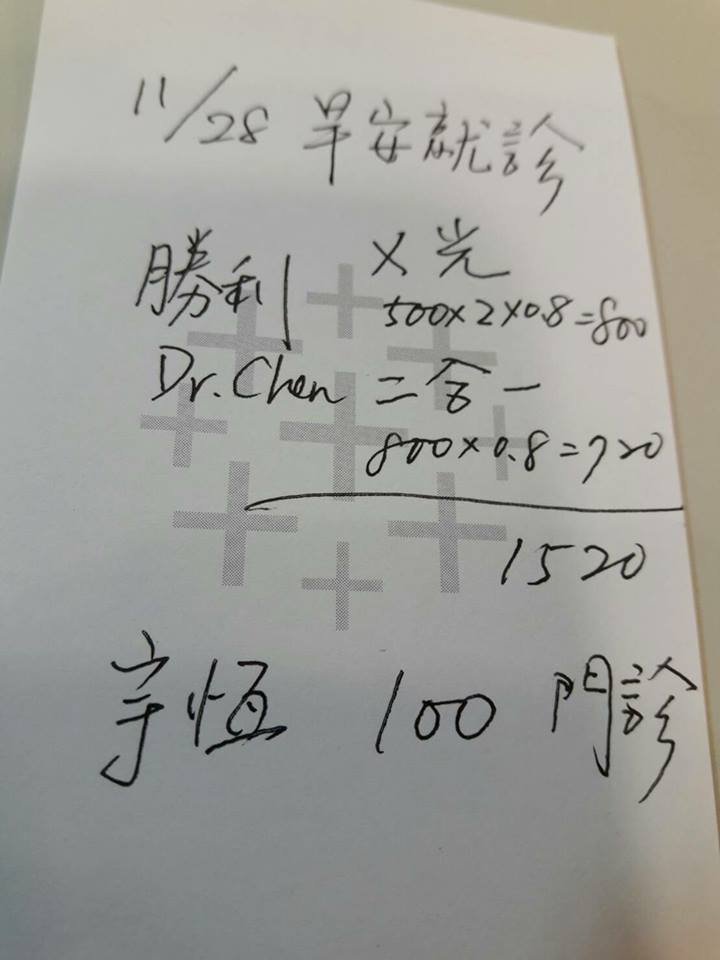 11/28 早安就診
勝利 X光
500×2×0.8=800
Dr. Chen 二合一
800×0.8=720
1520
宇恆 100 門診